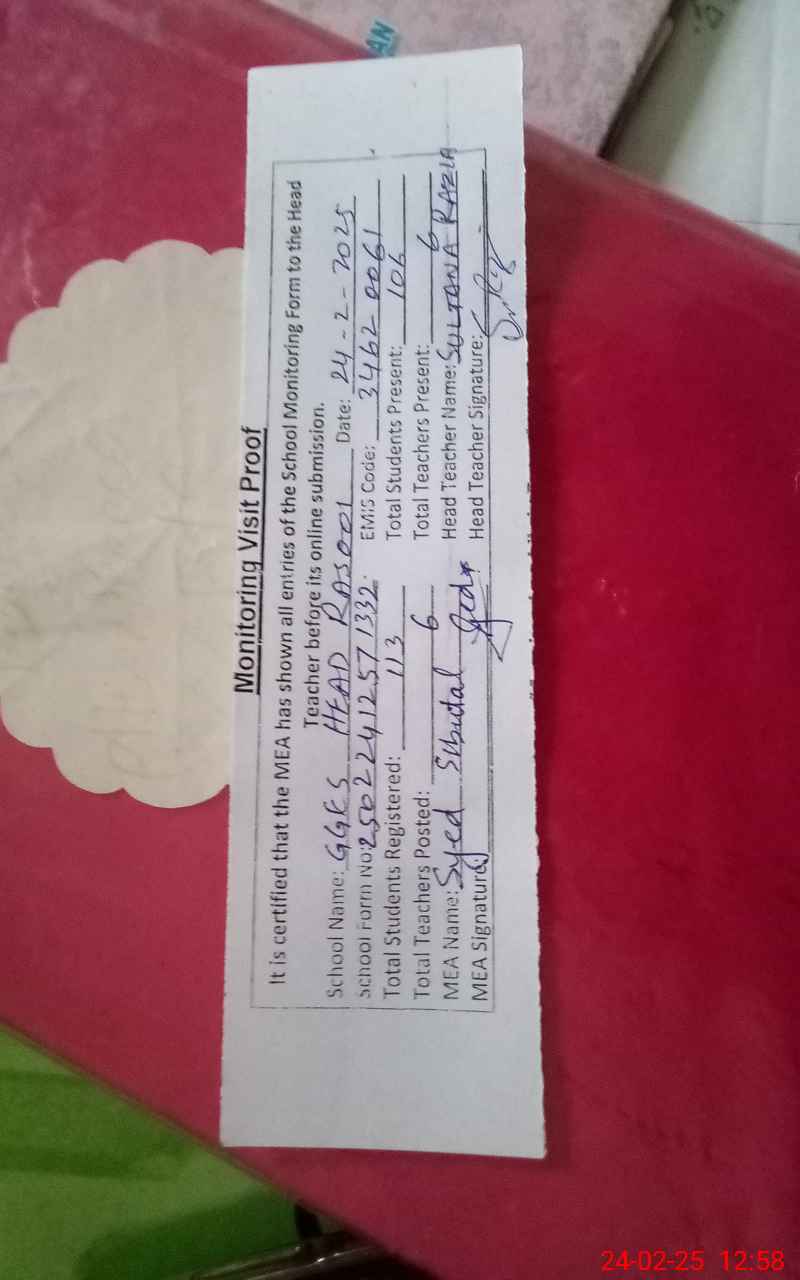 AN
Monitoring Visit Proof
It is certified that the MEA has shown all entries of the School Monitoring Form to the Head
Teacher before its online submission.
School Name: GGES HEAD RASOOL Date: 24-2-2025
School Form No: 25022412571332 EMIS Code: 34620061
Total Students Registered: 113 Total Students Present: 106
Total Teachers Posted: 6 Total Teachers Present: 6
MEA Name: Syed Head Teacher Name: SULTANA RAZIA
MEA Signature: Head Teacher Signature:
24-02-25 12:58